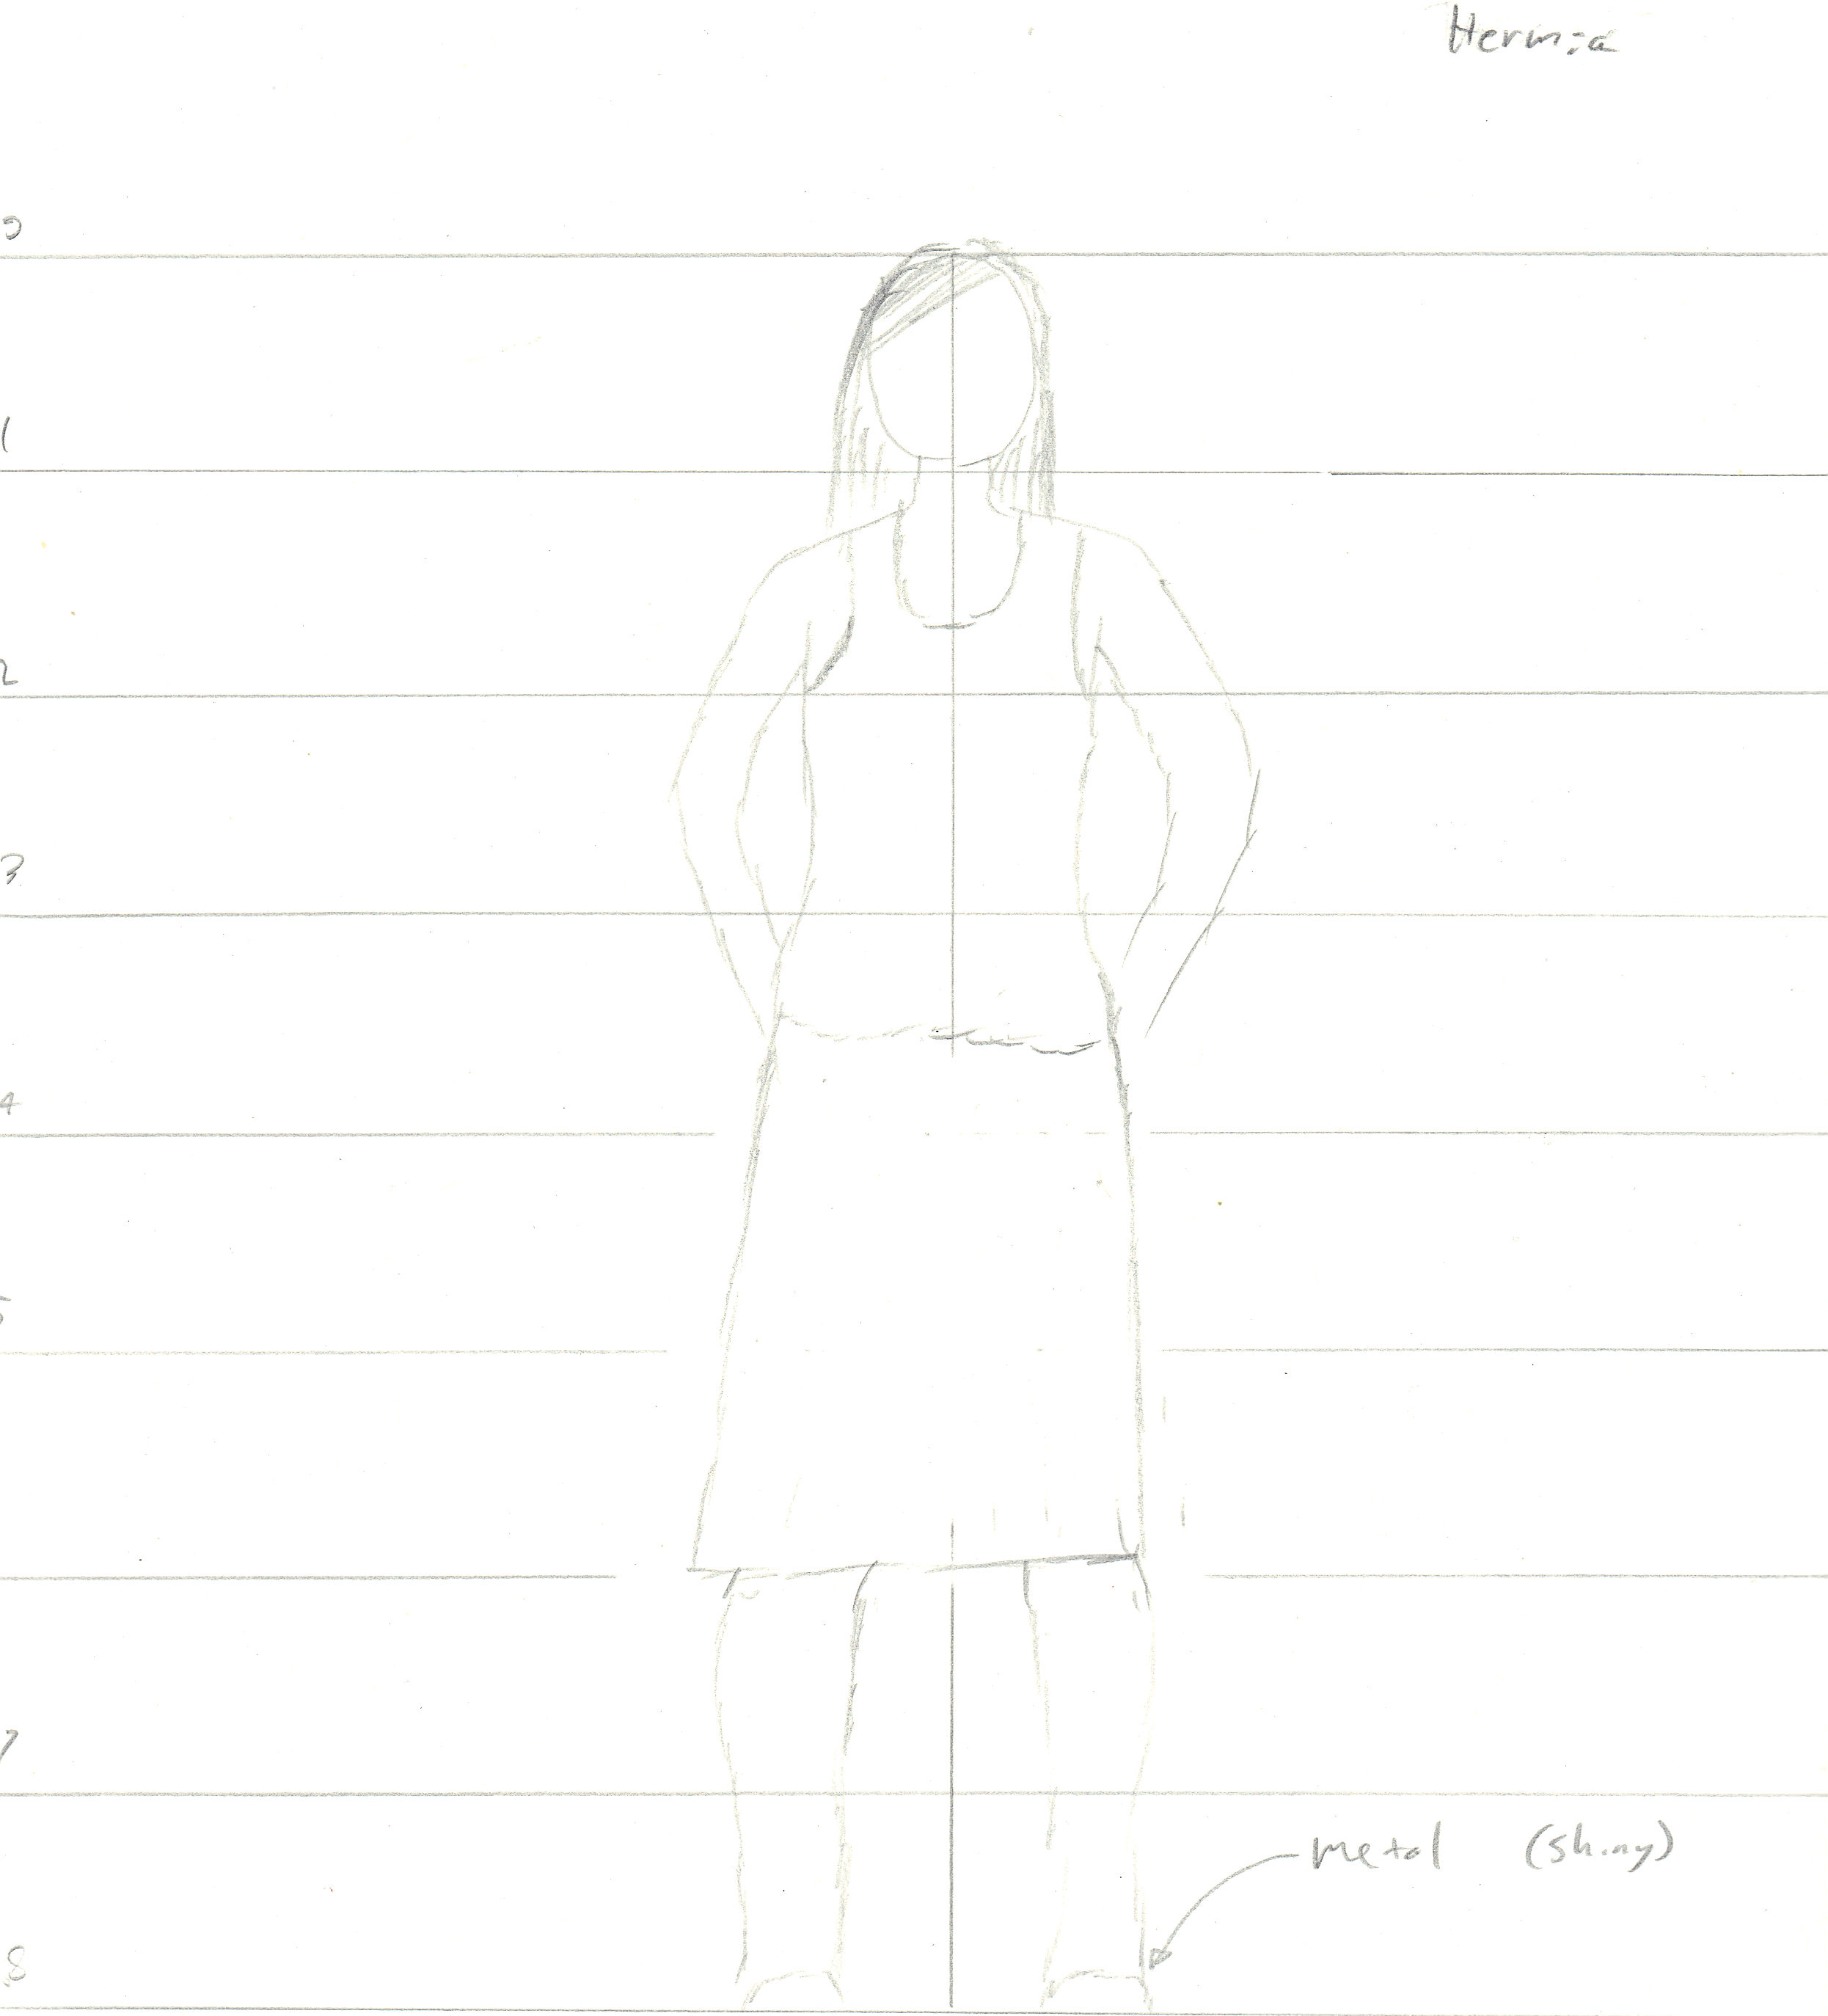 Hermia
0
1
2
3
4
5
7
metal (shiny)
8